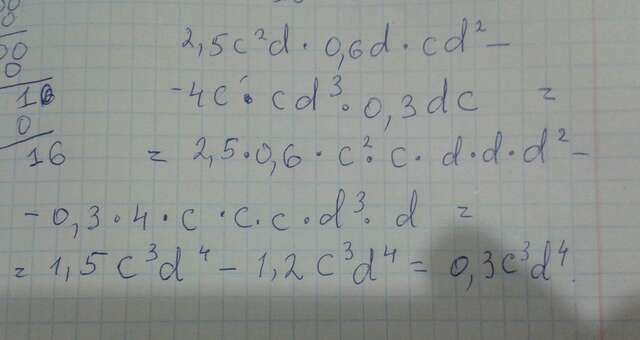 00
0
00
0
10
0
16
2,5c²d · 0,6d · cd² –
-4c · cd³ · 0,3dc =
= 2,5 · 0,6 · c² · c · d · d · d² –
- 0,3 · 4 · c · c · c · d³ · d =
= 1,5c³d⁴ – 1,2c³d⁴ = 0,3c³d⁴.